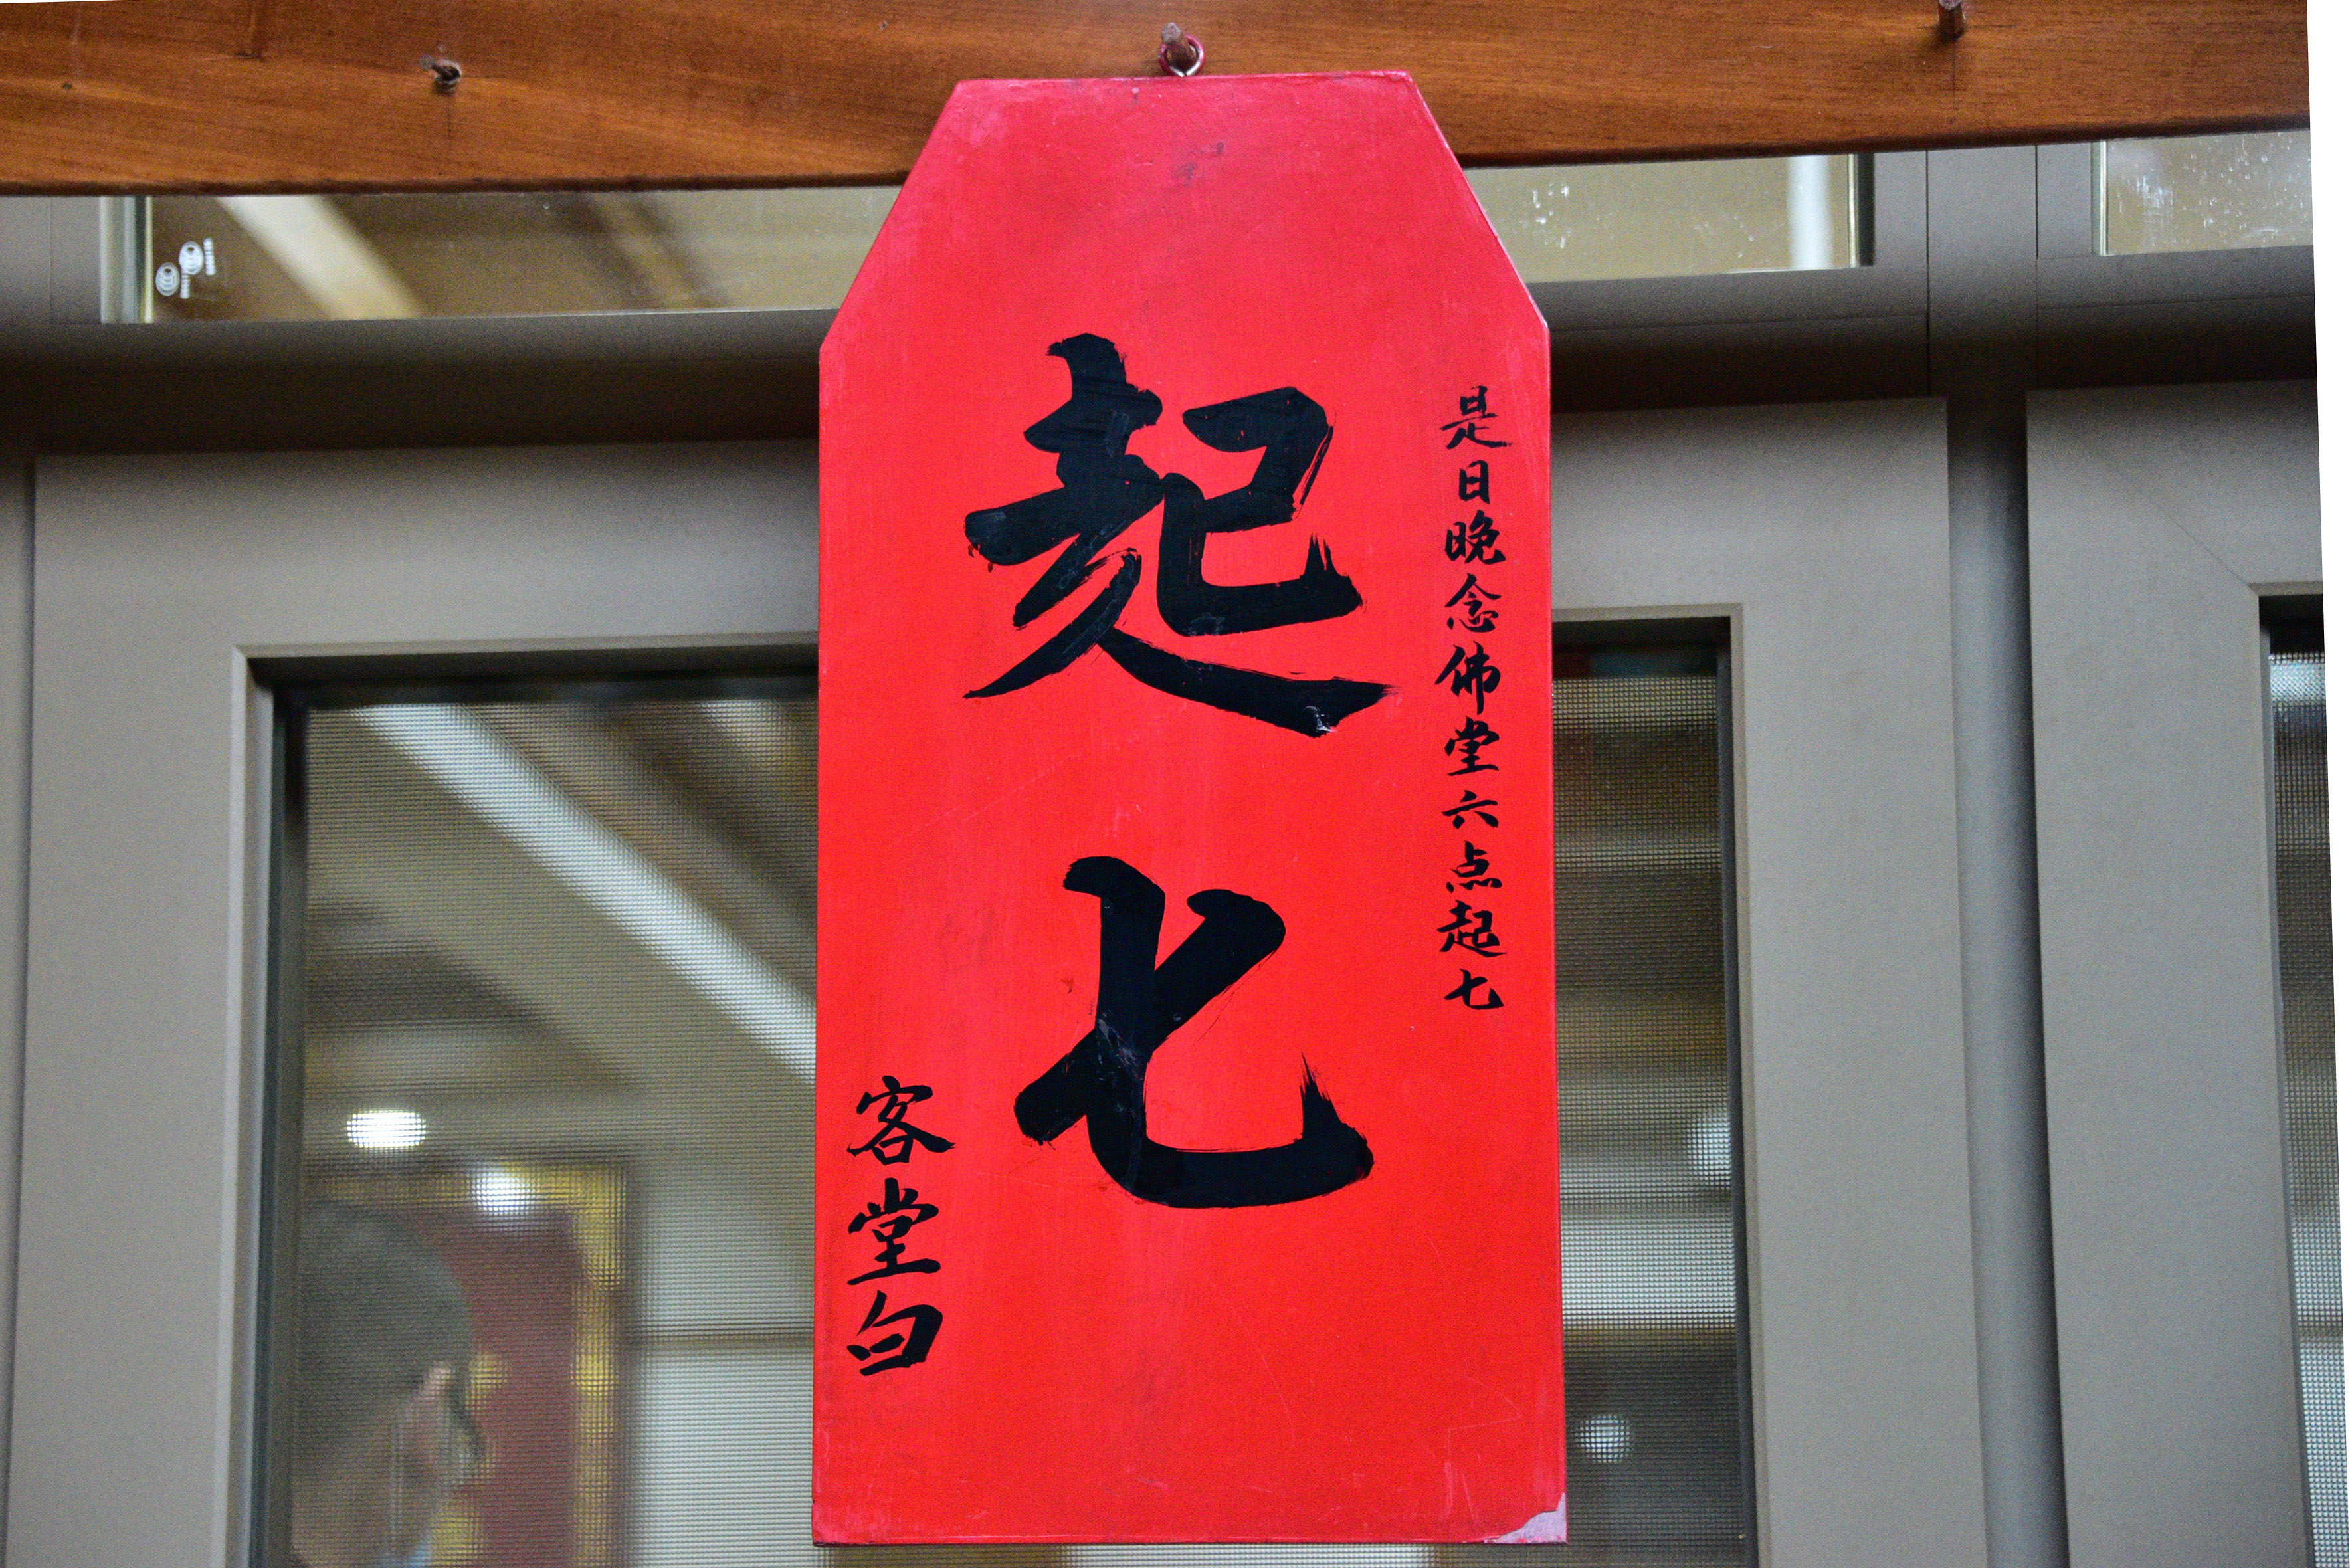 是日晚念佛堂六点起七
起七
客堂白